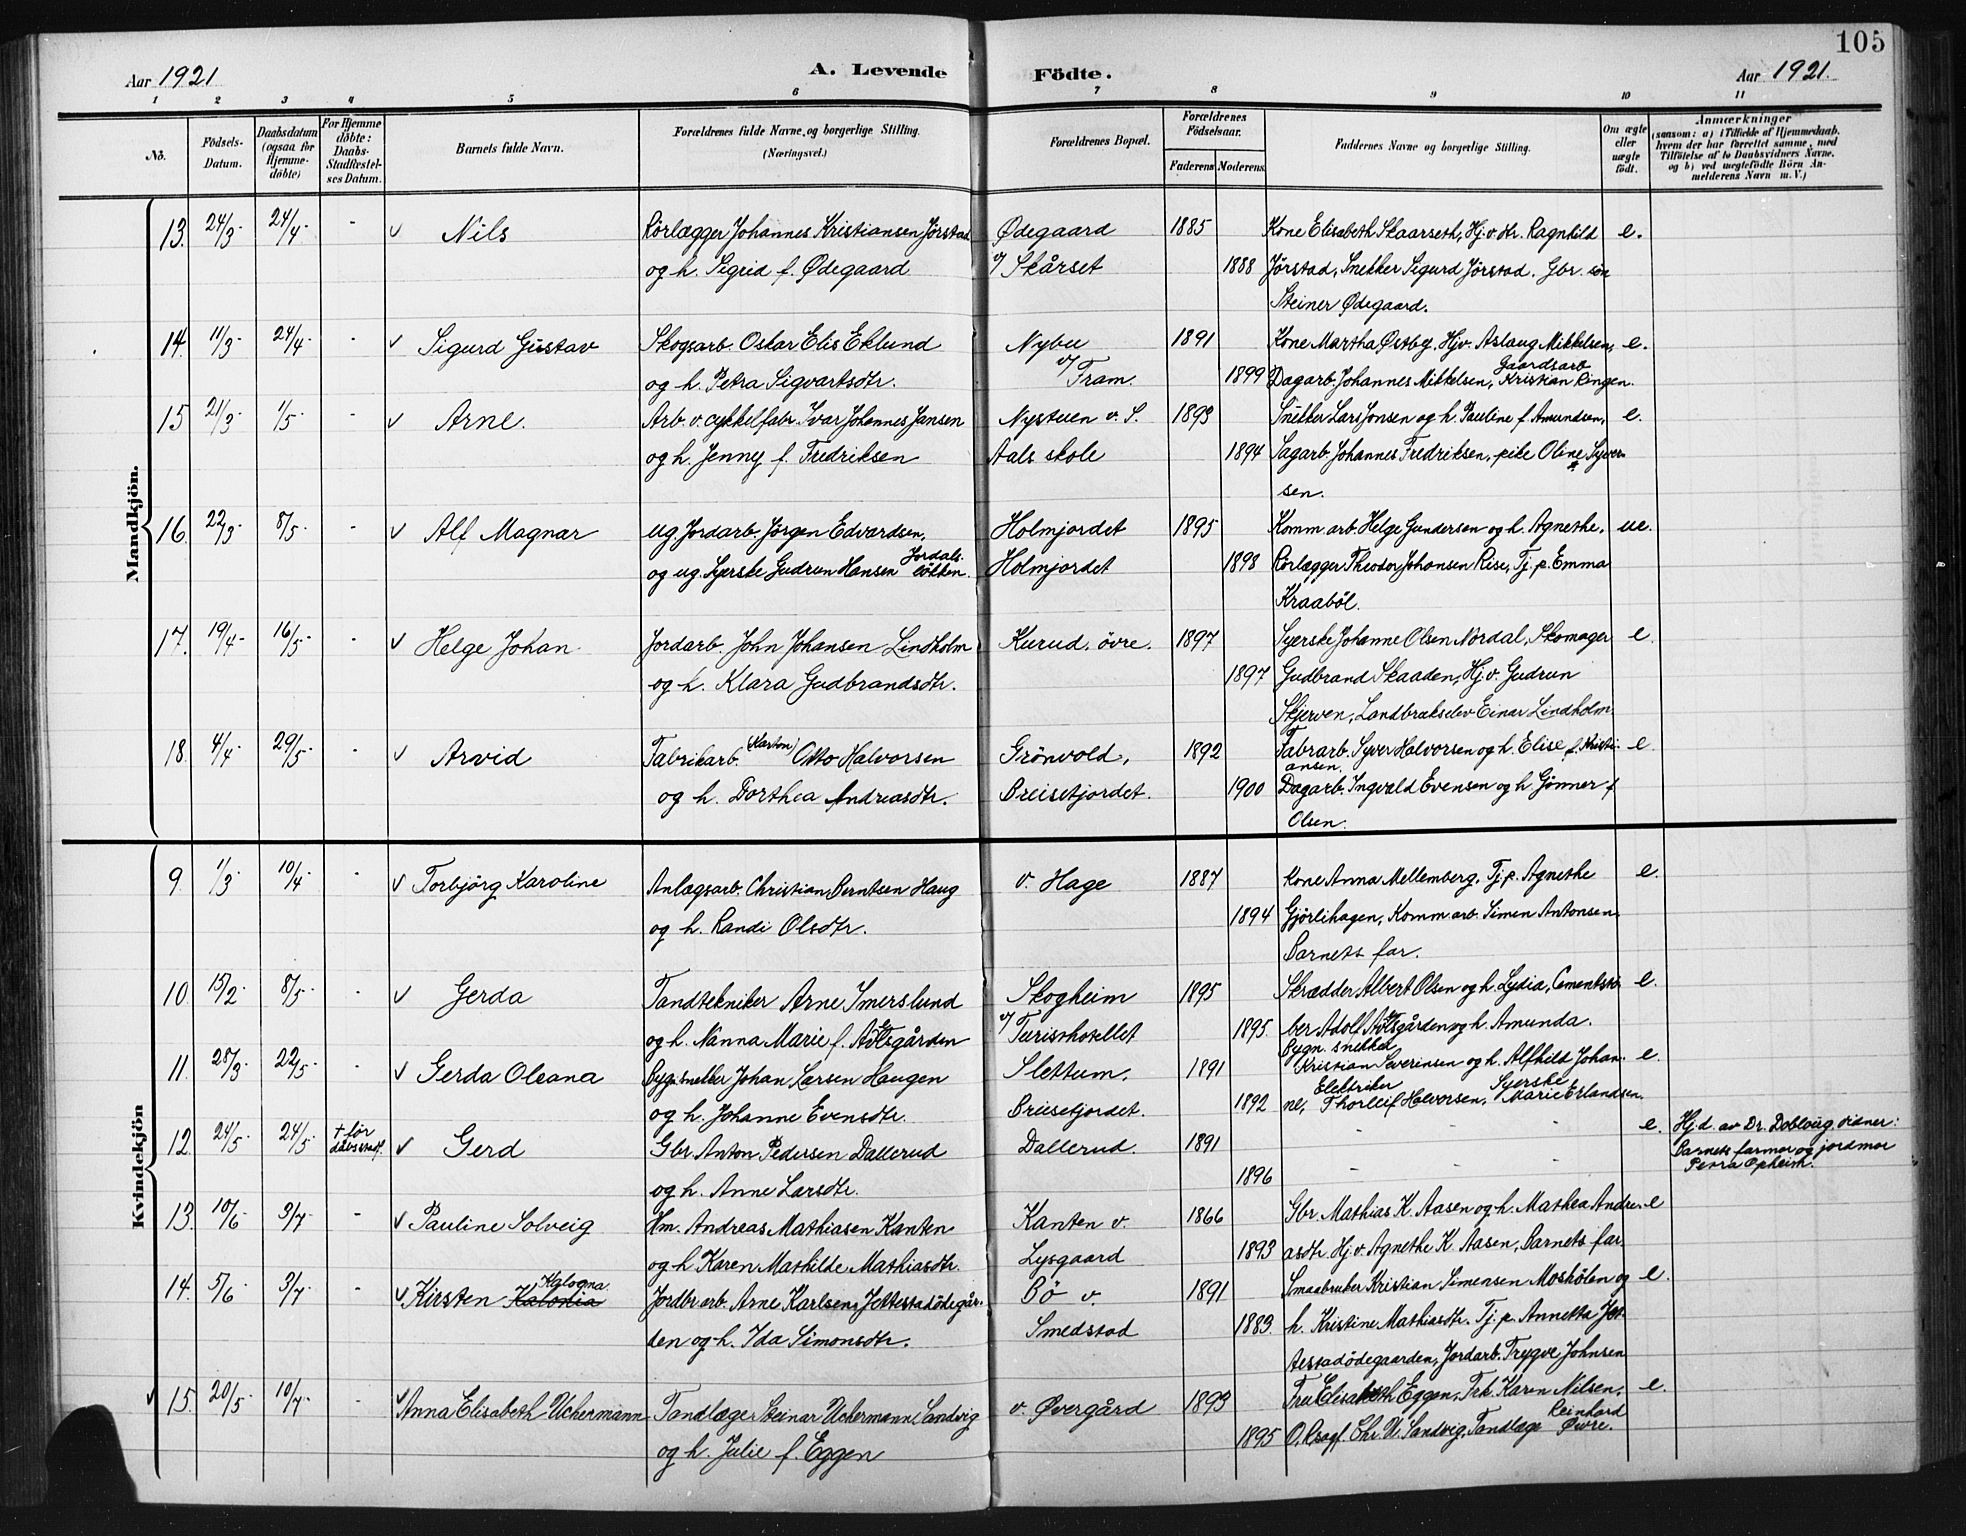 105
Aar 1921
A. Levende Födte.
Aar 1921.
1 2 3 4 5 6 7 8 9 10 11
No.
Födsels-Datum.
Daabsdatum (ogsaa for Hjemme-döbte)
For Hjemme döbte: Daabs-Stadfæstel-ses Datum.
Barnets fulde Navn.
Forældrenes fulde Navne, og borgerlige Stilling. (Næringsvei.)
Forældrenes Bopæl.
Forældrenes Födselsaar.
Faderens Moderens
Faddernes Navne og borgerlige Stilling.
Om ægte eller uægte født.
Anmærkninger
(saasom: a) i Tilfælde af Hjemmedaab, hvem der har forrettet samme, med Tilföielse af to Daabsvidners Navne, og b) ved uegtefödte Börn An-melderens Navn m. V.)
Mandkjön.
13. 24/3. 24/4. - v Nils Rörlægger Johannes Kristiansen Jörstad Ødegaard 1885 Kone Elisabeth Skaarseth, Hj.v. dtr. Ragnhild e.
og h. Sigrid f. Ødegaard v/ Skårset 1888 Jörstad, Snekker Sigurd Jörstad. Gbr. sön
Steiner Ødegaard.
14. 11/3. 24/4. - v Sigurd Gustav Skogsarb. Oskar Elis Eklund Nybu 1891 Kone Martha Østby. Hjv. Aslaug Mikkelsen, e.
og h. Petra Sigvartsdtr. v/ Fram. 1899 Dagarb. Johannes Mikkelsen, Gaardsarb. Kristian Ringen.
15 21/3. 1/5. - v Arne. Arb. v. cykkelfabr. Ivar Johannes Jansen Nystuen v. S. 1893 Snekker Lars Jonsen og h. Pauline f. Amundsen, e.
og h. Jenny f. Fredriksen Aals skole 1894 Sagarb. Johannes Fredriksen, pike Oline Syver-
sen.
16. 22/3. 8/5. - v Alf Magnar ug. Jordarb. Jörgen Edvardsen, Holmjordet 1895 Komm. arb. Helge Gundersen og h. Agnethe, ue.
og ug. Syerske Gudrun Hansen Jordals-lökken. Holmjordet 1898 Rörlægger Theodor Johansen Rise, Tj. p. Emma
Kraaböl.
17. 19/4. 16/5. - v Helge Johan Jordarb. John Johansen Lindholm Kurud, övre. 1897 Syerske Johanne Olsen Nordal, Skomager e.
og h. Klara Gudbrandsdtr. 1897 Gudbrand Skaaden, Hj.v. Gudrun
Skjerven, Landbrukselev Einar Lindholm
18. 4/4. 29/5. - v Arvid Fabrikarb. (Karton) Otto Halvorsen Grönvold, 1892 Fabrarb. Syver Halvorsen og h. Elise f. Kristi-ansen. e.
og h. Dorthea Andreasdtr. Breisetjordet. 1900 Dagarb. Ingvald Evensen og h Gjönner f.
Olsen.
Kvindekjön
9. 1/3. 10/4. - v Torbjörg Karoline Anlægsarb. Christian Berntsen Haug v. Hage 1887 Kone Anna Mellemberg. Tj.p. Agnethe e.
og h. Randi Olsdtr. 1894 Gjörlihagen, Komm. arb. Simen Antonsen.
Barnets far.
10. 15/2. 8/5. - v Gerda Tandtekniker Arne Imerslund Skogheim 1895 Skrædder Albert Olsen og h. Lydia, Cementstö- e.
og h. Nanna Marie f. Avlsgården v/ Turisthotellet 1895. ber Adolf Avlsgården og h. Amunda.
11. 28/3. 22/5. v Gerda Oleana Bygn.snekker Johan Larsen Haugen Slettum. 1891 Bygn. snekker Kristian Severinsen og h. Alfhild Johan- e.
og h. Johanne Evensdtr. Breisetjordet. 1892 ne, Elektriker Thorleif Halvorsen, Syerske Marie Erlandsen.
12. 24/5. 24/5. + før dåbsstadf. v Gerd Gbr. Anton Pedersen Dallerud Dallerud. 1891 - - - e. Hj.d. av Dr. Dobloug vidner:
og h. Anne Larsdtr. 1896 - - - Barnets farmor og jordmor
Petra Opheim.
13. 10/6. 3/7. - v Pauline Solveig Hm. Andreas Mathiasen Kanten Kanten v. 1866 Gbr. Mathias K. Aasen og h. Mathea Andre- e
og h Karen Mathilde Mathiasdtr. Lysgaard 1893 asdtr. Hj.v. Agnethe K. Aasen, Barnets far.
14. 5/6. 3/7. - v Kirsten Kalonia Kalogna Jordbr.arb. Arne Karlsen Jettestadödegår- Bö v. 1891 Smaabruker Kristian Simensen Moskölen og e.
den og h. Ida Simonsdtr. Smedstad 1883. h. Kristine Mathiasdtr. Tj. p. Annetta Jet-
testadödegaarden, Jordarb. Trygve Johnsen
v 15. 20/5. 10/7. - v Anna Elisabeth Uchermann Tandlæge Steinar Uchermann Sandvig v. Øvergård 1893 Fru Elisabeth Eggen, Frk. Karen Nilsen, e.
og h. Julie f. Eggen 1895 O.Rsagf. Chr. U. Sandvig, Tandlæge Reinhard Øvre.